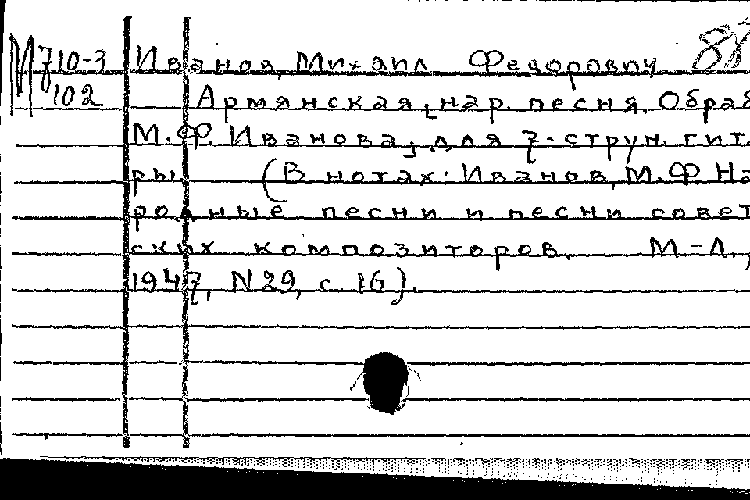 М710-3 Иванов, Михаил Федорович 88
102 Армянская нар. песня. Обраб
М.Ф. Иванова, для 7-струн. гит.
ры. (В нотах: Иванов, М.Ф. На
родные песни и песни совет
ских композиторов. М.-Л.,
1947, N29, с. 16).